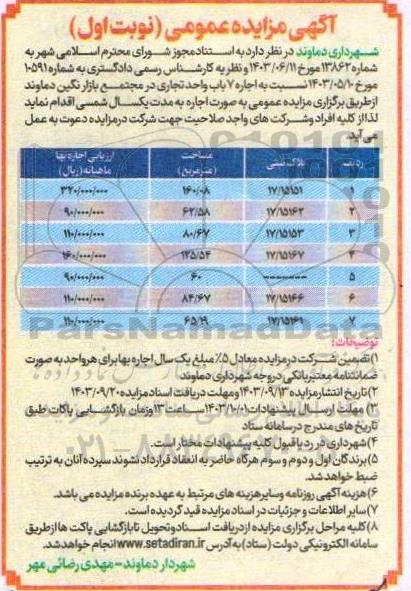 آگهی مزایده عمومی (نوبت اول)
شهرداری دماوند در نظر دارد به استناد مجوز شورای محترم اسلامی شهر به
شماره ۱۳۸۶۲ مورخ ۱۴۰۳/۰۶/۱۱ و نظر به کارشناس رسمی دادگستری به شماره ۱۰۵۹۱
مورخ ۱۴۰۳/۰۵/۱۰ نسبت به اجاره ۷ باب واحد تجاری در مجتمع بازار نگین دماوند
از طریق برگزاری مزایده عمومی به صورت اجاره به مدت یکسال شمسی اقدام نماید
لذا از کلیه افراد و شرکت های واجد صلاحیت جهت شرکت در مزایده دعوت به عمل
می آید.
ردیف پلاک ثبتی مساحت (مترمربع) ارزیابی اجاره بها ماهیانه (ریال)
۱ ۱۷/۱۵۱۵۱ ۱۶۰/۰۸ ۳۲۰/۰۰۰/۰۰۰
۲ ۱۷/۱۵۱۶۲ ۶۲/۵۸ ۹۰/۰۰۰/۰۰۰
۳ ۱۷/۱۵۱۵۳ ۸۰/۶۷ ۱۱۰/۰۰۰/۰۰۰
۴ ۱۷/۱۵۱۶۷ ۱۲۵/۵۴ ۱۶۰/۰۰۰/۰۰۰
۵ ------- ۶۰ ۹۰/۰۰۰/۰۰۰
۶ ۱۷/۱۵۱۶۶ ۸۴/۶۷ ۱۱۰/۰۰۰/۰۰۰
۷ ۱۷/۱۵۱۶۹ ۶۵/۱۹ ۱۱۰/۰۰۰/۰۰۰
توضیحات:
۱) تضمین شرکت در مزایده معادل ۵٪ مبلغ یک سال اجاره بها برای هر واحد به صورت
ضمانتنامه معتبر بانکی در وجه شهرداری دماوند
۲) تاریخ انتشار مزایده ۱۴۰۳/۰۹/۱۳ و مهلت دریافت اسناد مزایده ۱۴۰۳/۰۹/۲۰
۳) مهلت ارسال پیشنهادات ۱۴۰۳/۱۰/۰۱ ساعت ۱۳ و زمان بازگشایی پاکات طبق
تاریخ های مندرج در سامانه ستاد
۴) شهرداری در رد یا قبول کلیه پیشنهادات مختار است.
۵) برندگان اول و دوم و سوم هرگاه حاضر به انعقاد قرارداد نشوند سپرده آنان به ترتیب
ضبط خواهد شد.
۶) هزینه آگهی روزنامه و سایر هزینه های مرتبط به عهده برنده مزایده می باشد.
۷) سایر اطلاعات و جزئیات در اسناد مزایده قید گردیده است.
۸) کلیه مراحل برگزاری مزایده از دریافت اسناد و تحویل تا بازگشایی پاکت ها از طریق
سامانه الکترونیکی دولت (ستاد) به آدرس www.setadiran.ir انجام خواهد شد.
شهردار دماوند - مهدی رضائی مهر
ParsNamadData